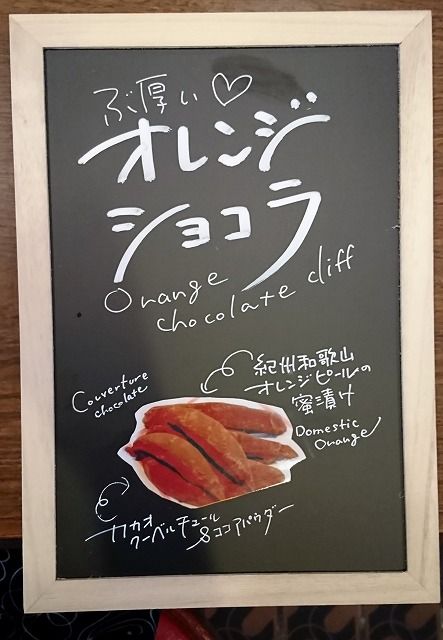 ぶ厚い♡
オレンジ
ショコラ
Orange
chocolate cliff
紀州和歌山
オレンジピールの
蜜漬け
Domestic
Orange
Couverture
chocolate
カカオ
クーベルチュール
&ココアパウダー